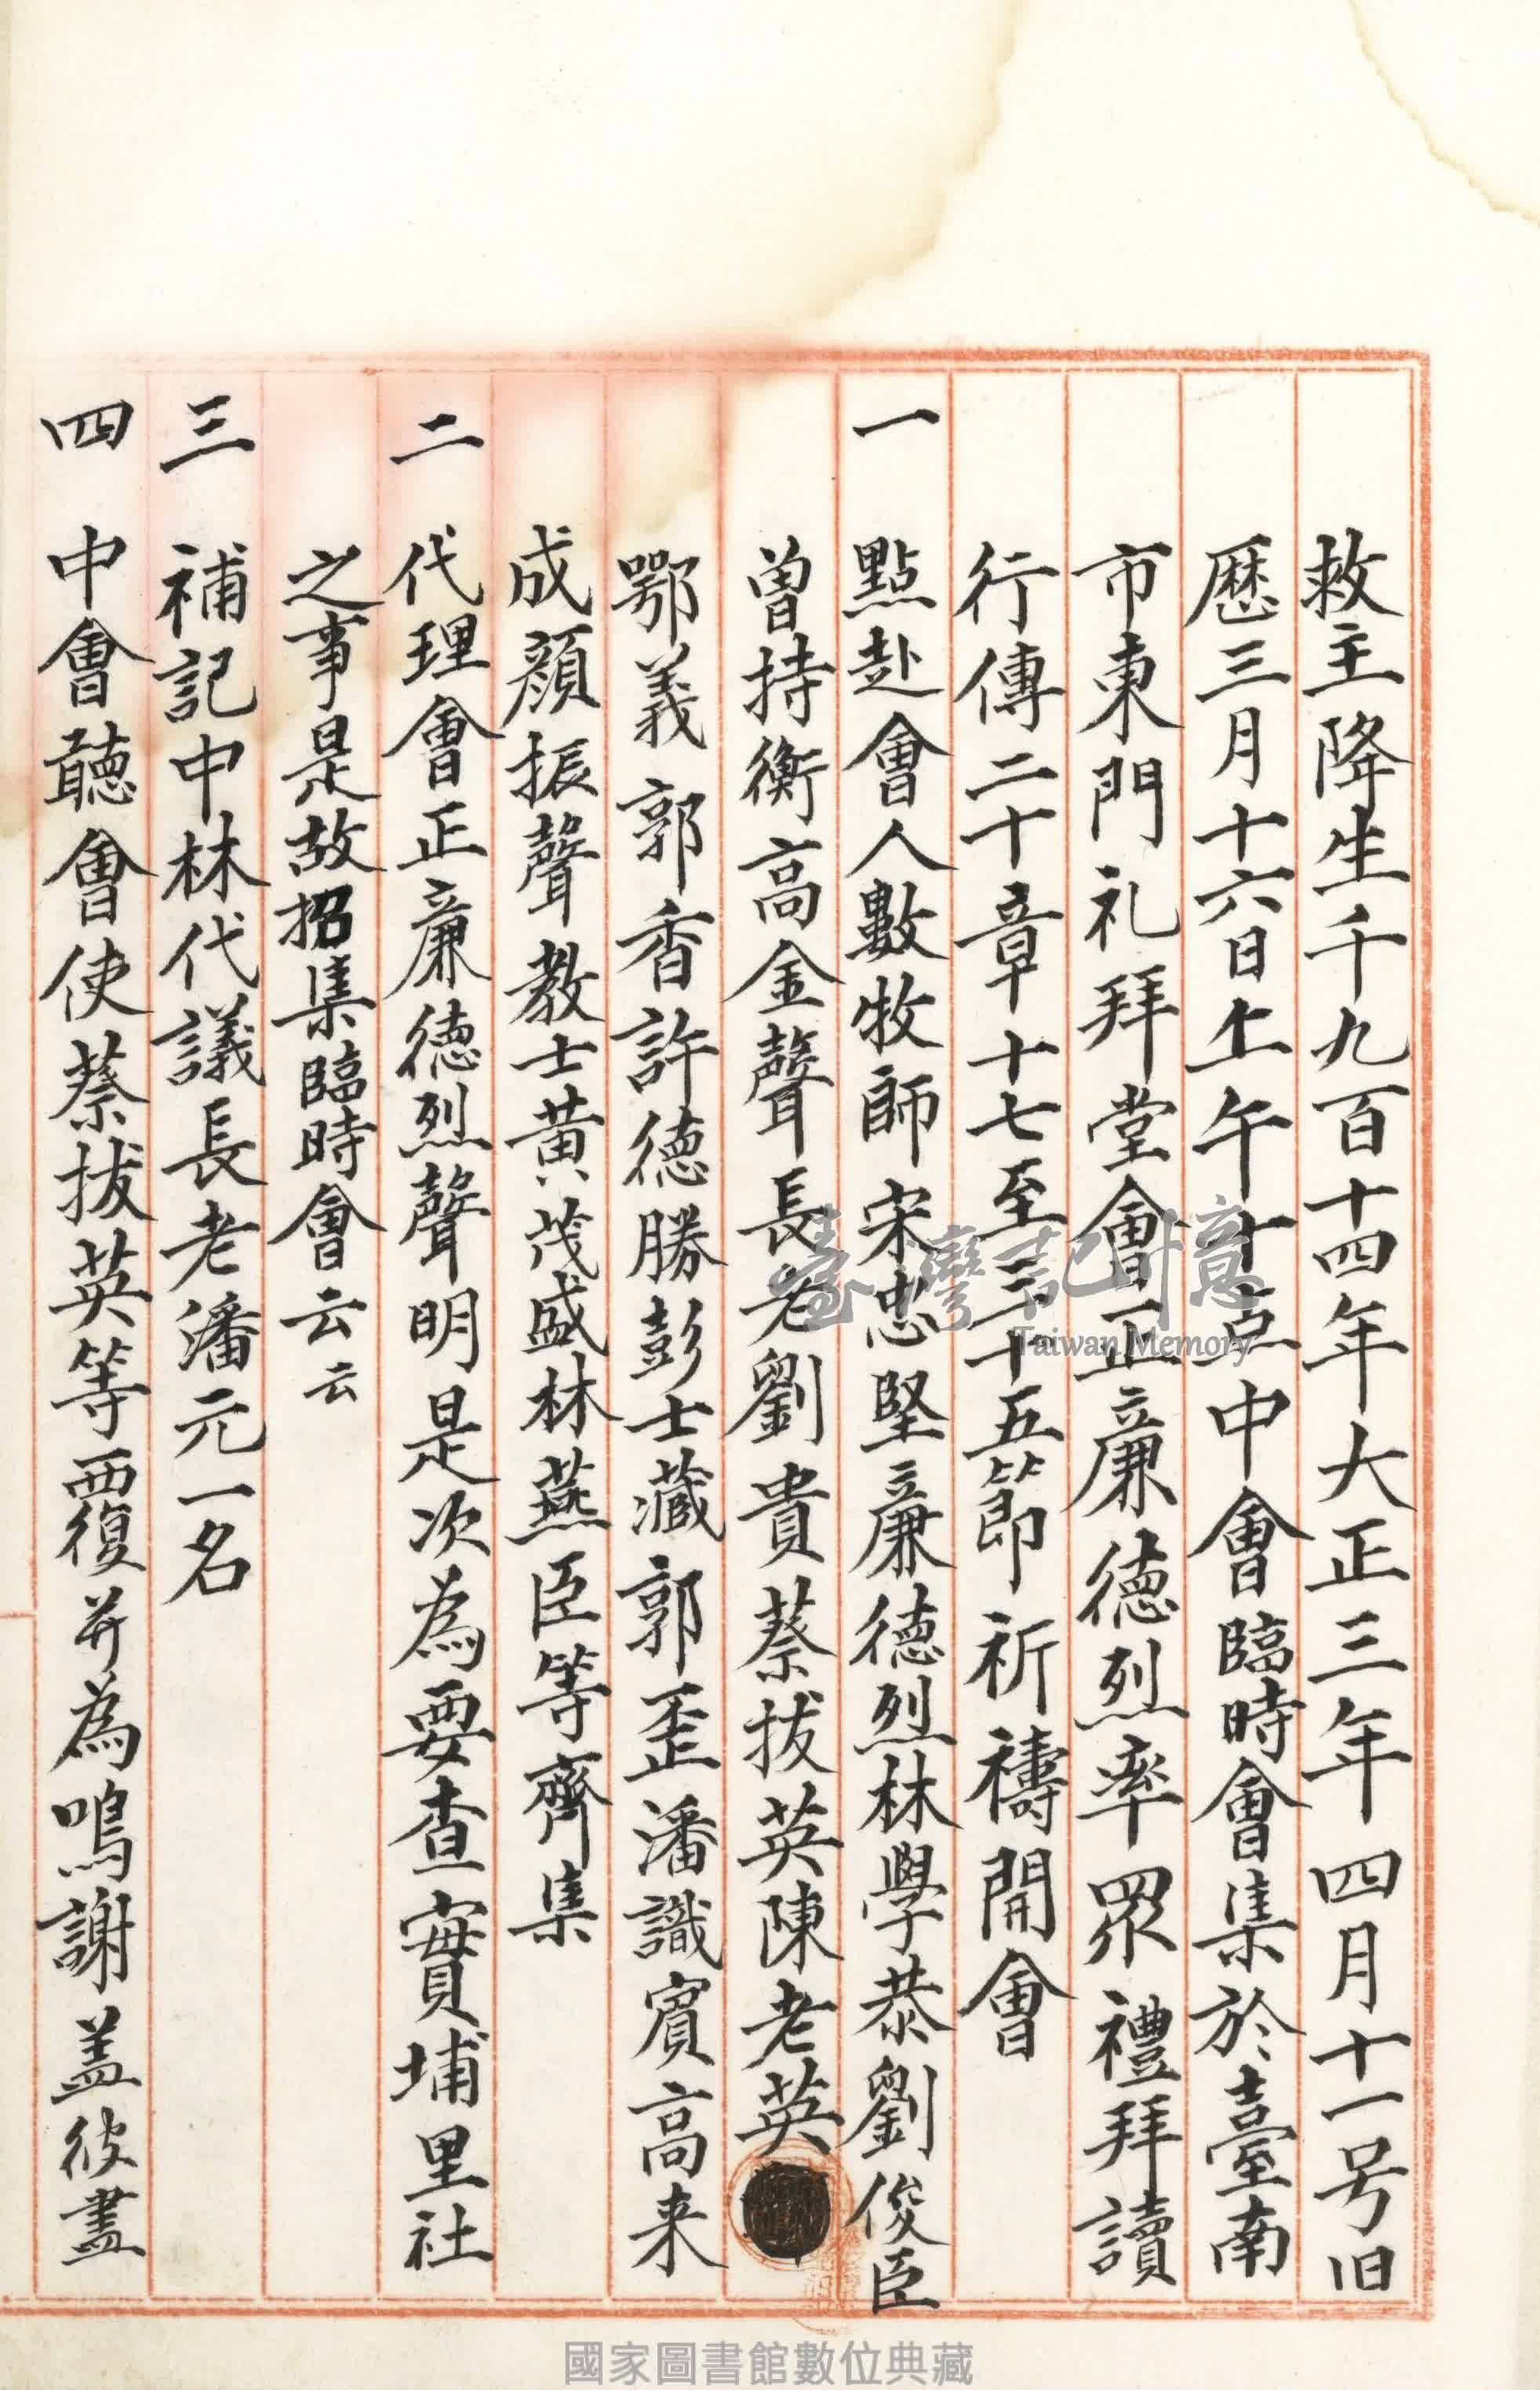 救主降生千九百十四年大正三年四月十一号旧
歷三月十六日上午十点中會臨時會集於臺南
市東門礼拜堂會正廉德烈率眾禮拜讀
行傳二十章十七至三十五節祈禱開會
一 點赴會人數牧師宋忠堅廉德烈林學恭劉俊臣
曾持衡高金聲長老劉貴蔡拔英陳老英
鄂義郭香許德勝彭士藏郭歪潘識賓高来
成顏振聲教士黃茂盛林燕臣等齊集
二 代理會正廉德烈聲明是次為要查實埔里社
之事是故招集臨時會云云
三 補記中林代議長老潘元一名
四 中會聽會使蔡拔英等覆并為鳴謝盖彼盡
臺灣記憶
Taiwan Memory
國家圖書館數位典藏